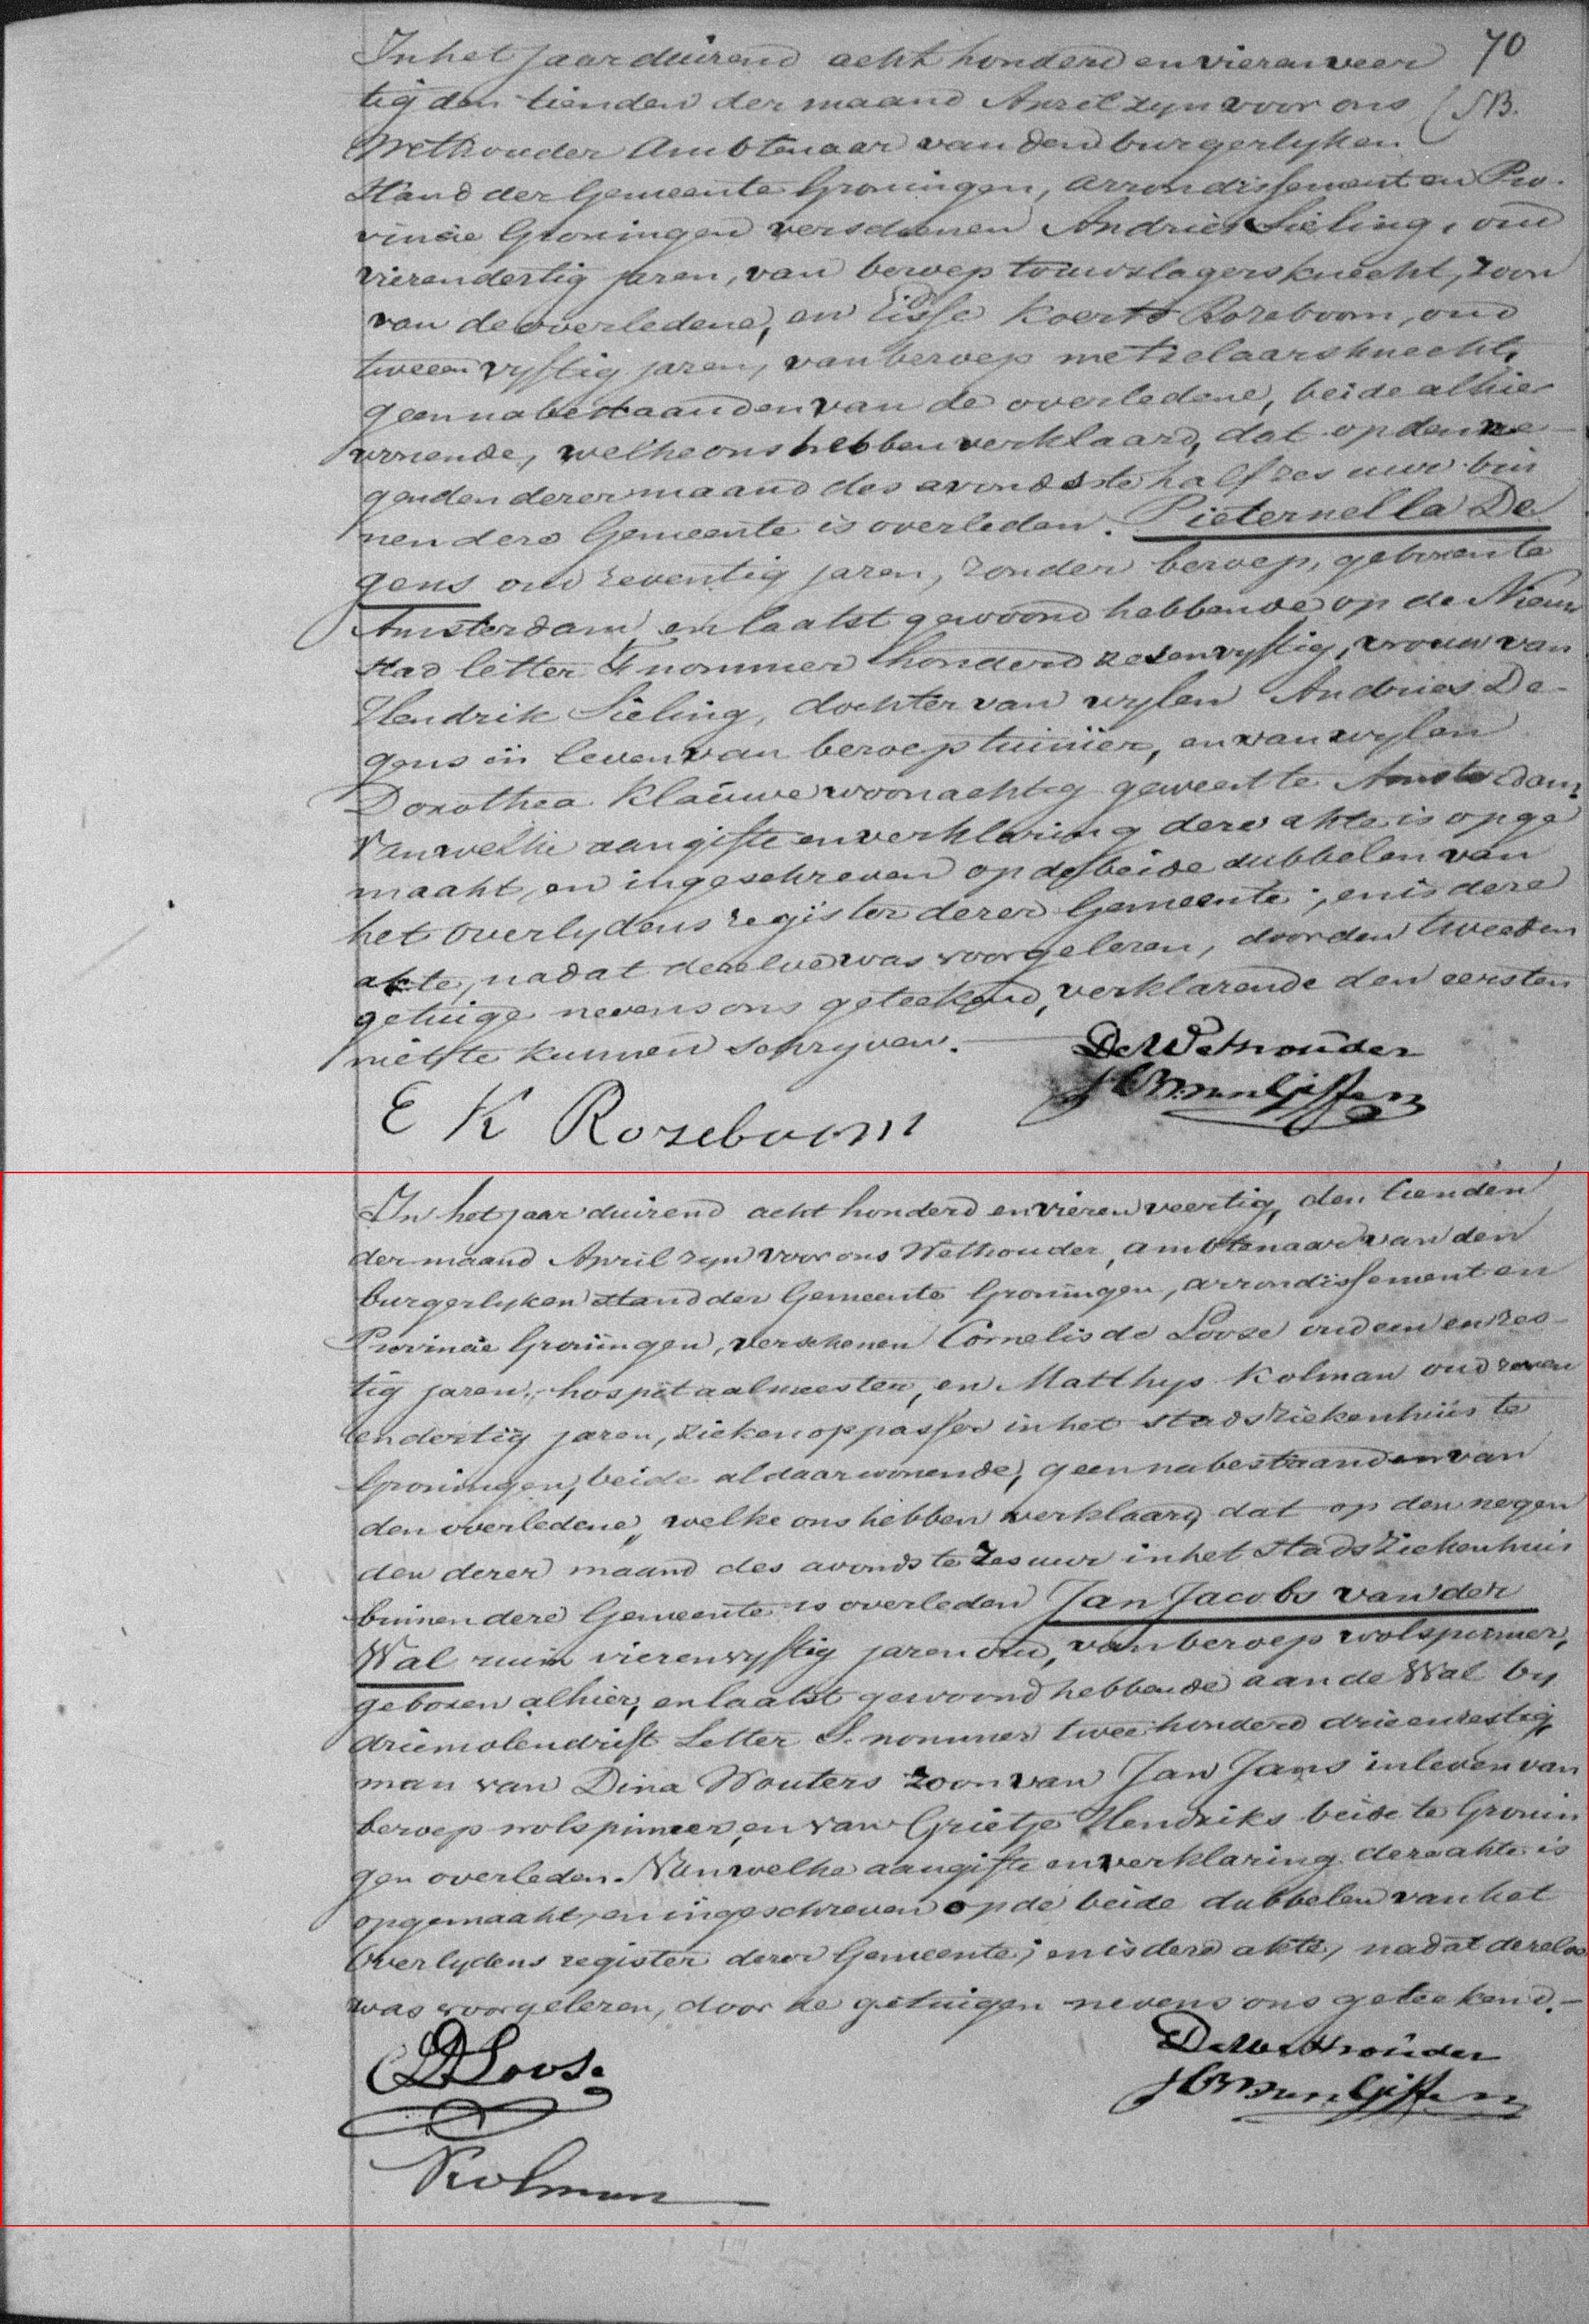 70
In het jaar duizend acht honderd en vieren veer
tig den tienden der maand April zyn voor ons
Wethouder Ambtenaar van den burgerlyken
Stand der Gemeente Groningen, arrondissement en Pro-
vincie Groningen verschenen Andries Sieling, oud
vierendertig jaren, van beroep touwslagersknecht, zoon
van de overledene, en Eisse Koerts Rozeboom, oud
tweeen vyftig jaren, van beroep metzelaarsknecht,
geen nabestaanden van de overledene, beide alhier
wonende, welke ons hebben verklaard, dat op den ne-
genden dezer maand des avonds te half zes uur bin
nen deze Gemeente is overleden. Pieternella De
gens oud zeventig jaren, zonder beroep, geboren te
Amsterdam, en laatst gewoond hebbende op de Nieuw
stad letter F nommer honderd zesenvyftig, vrouw van
Hendrik Sieling, dochter van wylen Andries De-
gens in leven van beroep tuinier, en van wylen
Dorothea Klauwe woonachtig geweest te Amsterdam,
Van welke aangifte en verklaring deze akte is opge
maakt, en ingeschreven op de beide dubbelen van
het overlydens register dezer Gemeente; en is deze
akte, nadat dezelve was voorgelezen, door den tweeden
getuige nevens ons geteekend, verklarende den eersten
niet te kunnen schryven.
De Wethouder
E K Rozeboom
In het jaar duizend acht honderd en vieren veertig, den tienden
der maand April zyn voor ons Wethouder, ambtenaar van den
burgerlyken stand der Gemeente Groningen, arrondissement en
Provincie Groningen, verschenen Cornelis de Looze oud een en zes-
tig jaren, hospitaalmeester, en Matthys Kolman oud zeven
endertig jaren, ziekenoppasser in het stads ziekenhuis te
Groningen, beide aldaar wonende, geen nabestaanden van
den overledene, welke ons hebben verklaard, dat op den negen
den dezer maand des avonds te zes uur in het stads ziekenhuis
binnen deze Gemeente is overleden Jan Jacobs van der
Wal ruim vierenvyftig jaren oud, van beroep wolspinner,
geboren alhier, en laatst gewoond hebbende aan de Wal by
driemolendrift Letter S. nommer twee honderd drieenzestig,
man van Dina Wouters zoon van Jan Jans in leven van
beroep wolspinner, en van Grietje Hendriks beide te Gronin
gen overleden. Van welke aangifte en verklaring deze akte is
opgemaakt, en ingeschreven op de beide dubbelen van het
Overlydens register dezer Gemeente; en is deze akte, nadat dezelve
was voorgelezen, door de getuigen nevens ons geteekend.-
De Wethouder
CD Loos.
Kolman